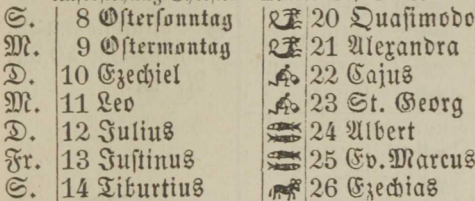 S. 8 Oſterſonntag 20 Quaſimodo
M. 9 Oſtermontag 21 Alexandra
D. 10 Ezechiel 22 Cajus
M. 11 Leo 23 St. Georg
D. 12 Julius 24 Albert
Fr. 13 Juſtinus 25 Ev. Marcus
S. 14 Tiburtius 26 Ezechias